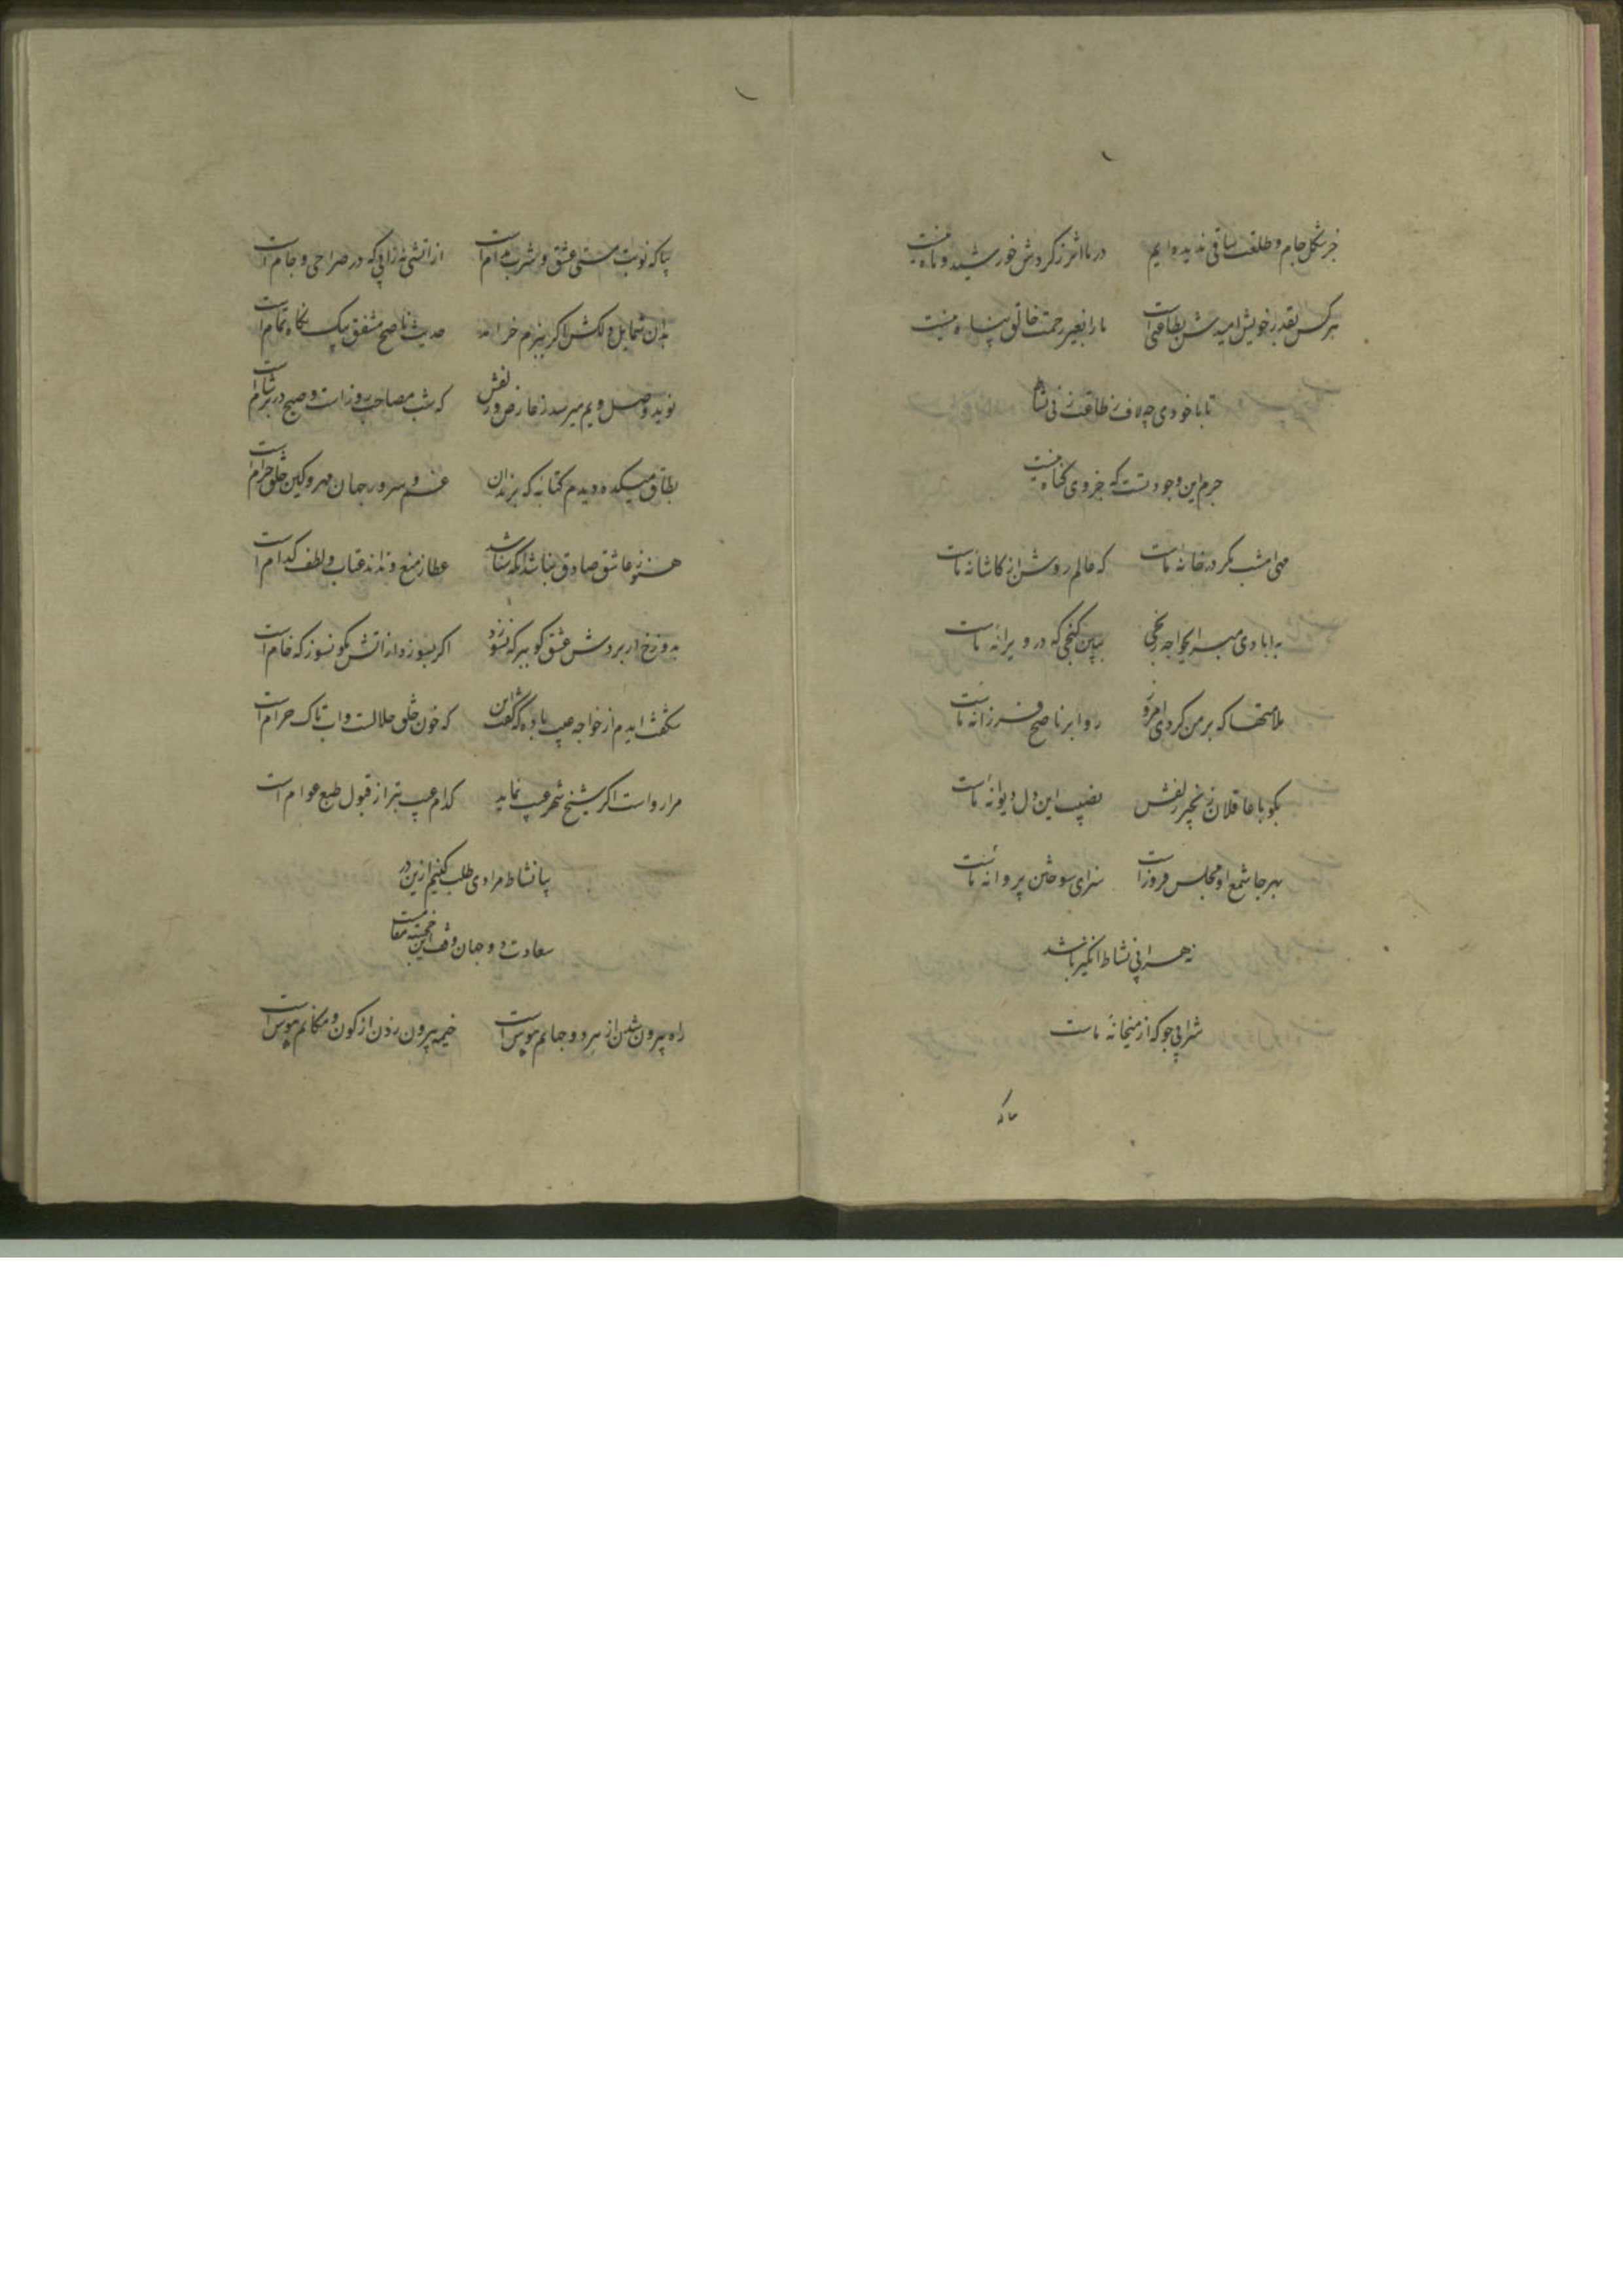 جز شکل جام و طلعت ساقی ندیده ایم در ما اثر ز کردش خورشید و ماه نیست
هر کس بقدر خویش امیدش بطاعتی است ما را بغیر رحمت خالق پناه نیست
تا با خودی چه لاف ز طاعت زنی نشاط
جرم این وجود تست که جز وی کناه نیست
مهی امشب مکر در خانه ماست که عالم روشن از کاشانه ماست
به ابادی مبر ایخواجه رنجی ببین کنجی که در ویرانه ماست
ملامتها که بر من کردی امروز روا بر ناصح فرزانه ماست
بکو با عاقلان زنجیر زلفش نصیب این دل دیوانه ماست
بهر جا شمع او مجلس فروز است سزای سوختن پروانه ماست
نه هر رایی نشاط انکیز باشد
شرابی جو که از میخانه ماست
بیا که
بیا که نوبت مستی عشق و شرب مدام است از اتشی نه زابی که در صراحی و جام است
بدان شمایل دلکش اکر ببزم خرامد حدیث ناصح مشفق بیک نکاه تمام است
نوید وصل ویم میرسد ز عارض و زلفش که شب مصاحب روز است و صبح در بر شام است
بطاق میکده دیدم کتابه که برندان غم و سرور جهان مهر و کین خلق حرام است
هنوز عاشق صادق نباشد انکه شناسد عطا ز منع و نداند عتاب و لطف کدام است
بدوزخ ار بردش عشق کو ببر که نسوزد اکر بسوزد از اتش بکو بسوز که خام است
شکفت ایدم از خواجه عیب باده که کفت این که خون خلق حلالست و اب تاک حرام است
مرا رواست اکر شیخ شهر عیب نماید کدام عیب بتر از قبول طبع عوام است
بیا نشاط مرادی طلب کنیم ازین در
سعادت دو جهان وقف این خجسته مقام است
راه بیرون شدن از هر دو جهانم هوس است خیمه بیرون زدن از کون و مکانم هوس است